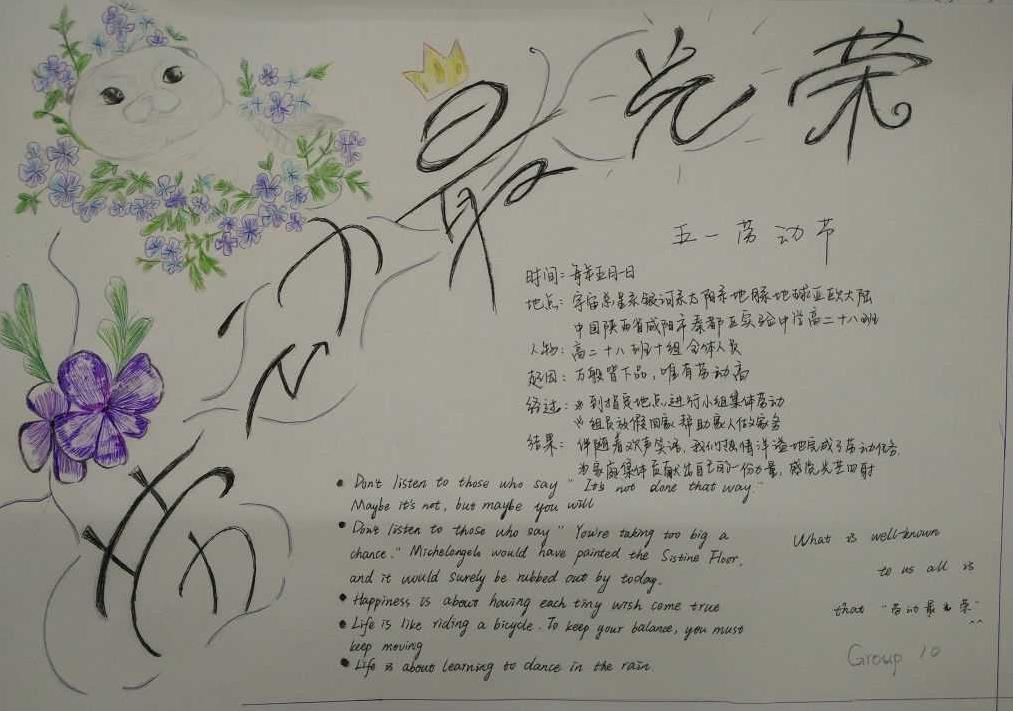 劳动最光荣
五一劳动节
时间：每年五月一日
地点：宇宙总星系银河系太阳系地月系地球亚欧大陆
中国陕西省咸阳市秦都区实验中学高二十八班
人物：高二十八班十组全体人员
起因：万般皆下品，唯有劳动高
经过：※到指定地点进行小组集体劳动
※组员放假回家帮助家人做家务
结果：伴随着欢声笑语，我们热情洋溢地完成了劳动任务，
为家庭集体贡献出自己的一份力量，感觉光芒四射
• Don't listen to those who say "It's not done that way."
Maybe it's not, but maybe you will
• Don't listen to those who say "You're taking too big a
chance." Michelangelo would have painted the Sistine Floor,
and it would surely be rubbed out by today.
• Happiness is about having each tiny wish come true
• Life is like riding a bicycle. To keep your balance, you must
keep moving
• Life is about learning to dance in the rain.
What is well-known
to us all is
that "劳动最光荣"
^^
Group 10